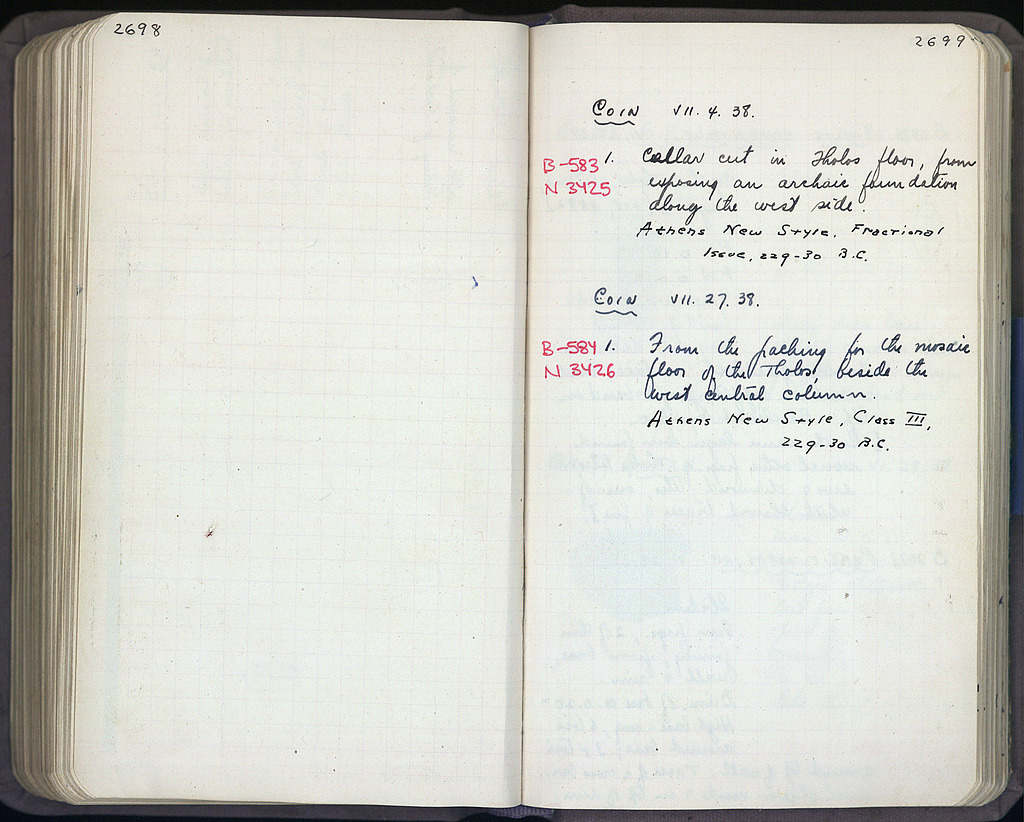 2698
2699
Coin VII. 4. 38.
B-583 1. Cellar cut in Tholos floor, from
N 3425 exposing an archaic foundation
along the west side.
Athens New Style, Fractional
Issue, 229-30 B.C.
Coin VII. 27. 38.
B-584 1. From the packing for the mosaic
N 3426 floor of the Tholos, beside the
west central column.
Athens New Style, Class III,
229-30 B.C.